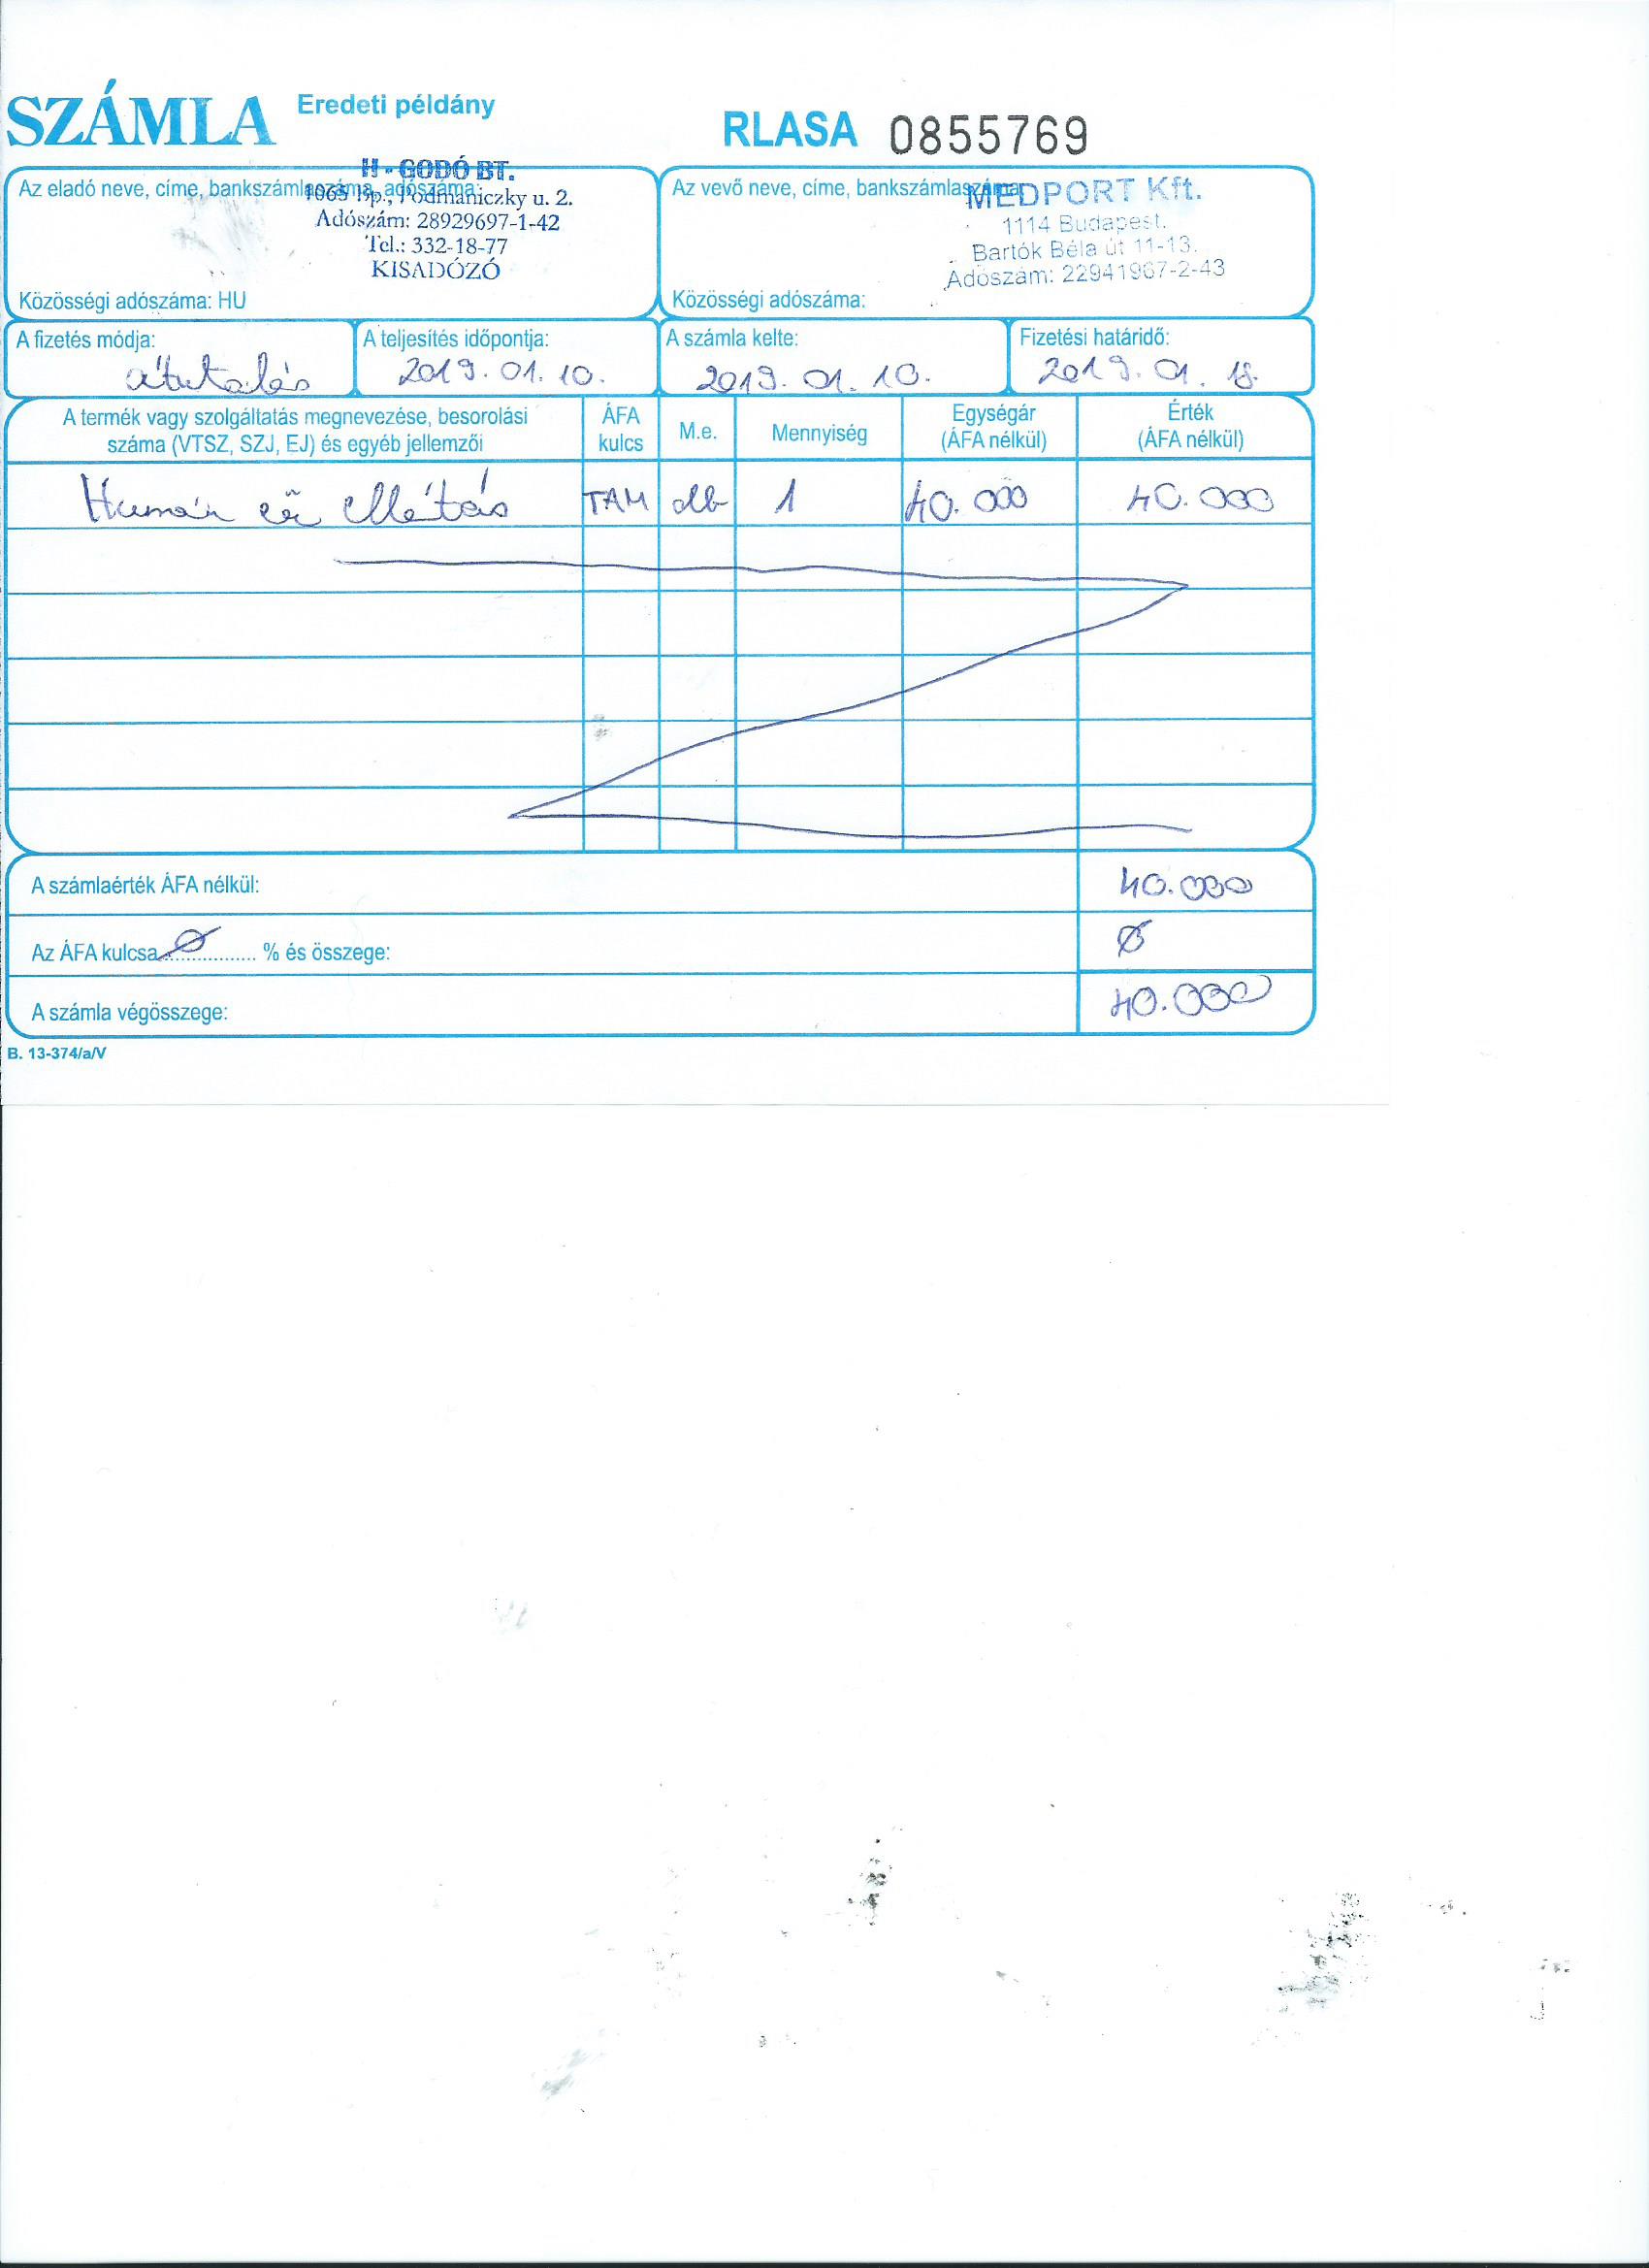 SZÁMLA Eredeti példány
RLASA 0855769
Az eladó neve, címe, bankszámlaszáma, adószáma:
H - GODÓ BT.
1065 Bp., Podmaniczky u. 2.
Adószám: 28929697-1-42
Tel.: 332-18-77
KISADÓZÓ
Közösségi adószáma: HU
Az vevő neve, címe, bankszámlaszáma:
MEDPORT Kft.
1114 Budapest.
Bartók Béla út 11-13.
Adószám: 22941967-2-43
Közösségi adószáma:
A fizetés módja:
átutalás
A teljesítés időpontja:
2019. 01. 10.
A számla kelte:
2019. 01. 10.
Fizetési határidő:
2019. 01. 18.
A termék vagy szolgáltatás megnevezése, besorolási
száma (VTSZ, SZJ, EJ) és egyéb jellemzői
ÁFA
kulcs
M.e.
Mennyiség
Egységár
(ÁFA nélkül)
Érték
(ÁFA nélkül)
Humán eü ellátás TAM db 1 40.000 40.000
A számlaérték ÁFA nélkül: 40.000
Az ÁFA kulcsa Ø % és összege: Ø
A számla végösszege: 40.000
B. 13-374/a/V